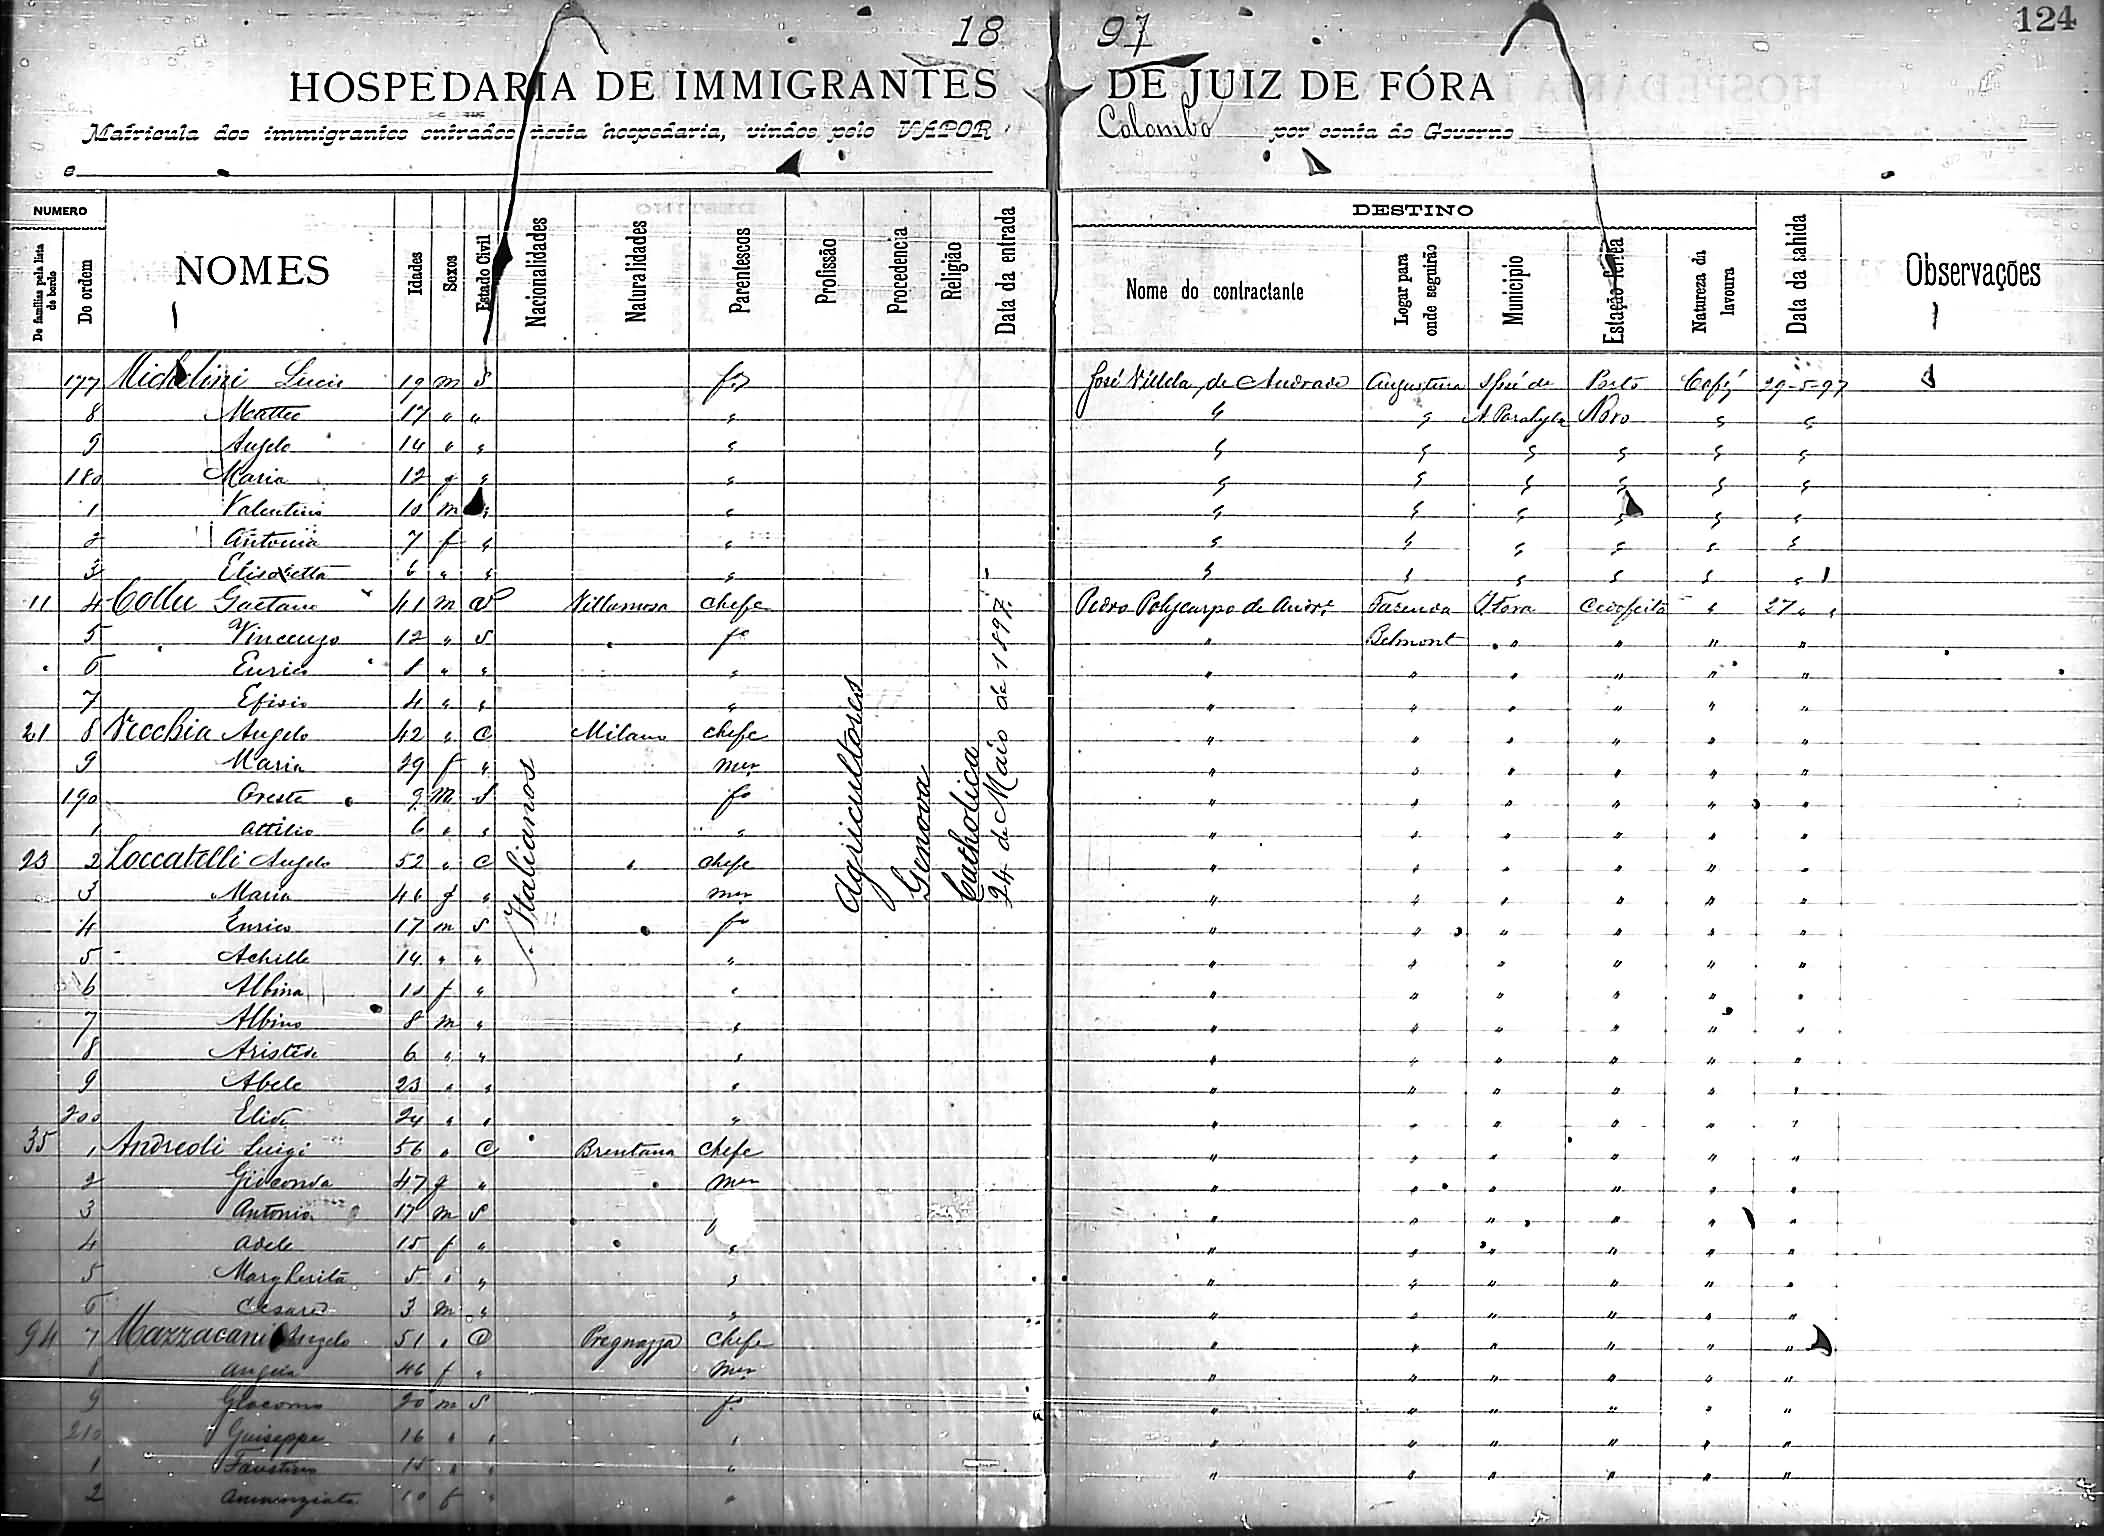 124
18 97
HOSPEDARIA DE IMMIGRANTES DE JUIZ DE FÓRA
Matricula dos immigrantes entrados nesta hospedaria, vindos pelo VAPOR Colombo por conta do Governo
e
NUMERO
De familias pela lista de bordo
De ordem
NOMES
Idades
Sexos
Estado Civil
Nacionalidades
Naturalidades
Parentescos
Profissão
Procedencia
Religião
Data da entrada
DESTINO
Nome do contractante
Logar para onde seguirão
Municipio
Estação ferrea
Natureza da lavoura
Data da sahida
Observações
Italianos
Agricultores
Genova
Catholica
24 de Maio de 1897
177 Michelini 19 m S fo José Villela de Andrade Angustura S José de Porto Café 29-5-97
8 Matteo 17 " " " " " A. Parahyba Novo " "
9 Angelo 14 " " " " " " " " "
180 Maria 12 f " " " " " " " "
1 Valentino 10 m " " " " " " " "
2 Antonia 7 f " " " " " " " "
3 Elisabetta 6 " " " " " " " " "
11 4 Collu Gaetano 41 m V Villamosa Chefe Pedro Polycarpo de Andre Fazenda J. Fora Cedofeita " 27 " "
5 Vincenzo 12 " S fo " Belmont " " " "
6 Enrico 8 " " " " " " " " "
7 Efisio 4 " " " " " " " " "
21 8 Vecchia Angelo 42 " C Milano chefe " " " " " "
9 Maria 29 f " mer " " " " " "
190 Oreste 9 m S fo " " " " " "
1 Attilio 6 " " " " " " " " "
23 2 Loccatelli Angelo 52 " C " chefe " " " " " "
3 Maria 46 f " mer " " " " " "
4 Enrico 17 m S fo " " " " " "
5 Achille 14 " " " " " " " " "
6 Albina 10 f " " " " " " " "
7 Albino 8 m " " " " " " " "
8 Aristide 6 " " " " " " " " "
9 Abele 23 " " " " " " " " "
200 Elide 24 " " " " " " " " "
35 1 Andreoli Luigi 56 " C Brentana Chefe " " " " " "
2 Gioconda 47 f " mer " " " " " "
3 Antonio 17 m S " " " " " "
4 Adele 15 f " " " " " " " "
5 Margherita 5 " " " " " " " " "
6 Cesare 3 m " " " " " " " "
94 7 Mazzacani Angelo 51 " C Pregnazza Chefe " " " " " "
8 Angela 46 f " mer " " " " " "
9 Giacomo 20 m S f. " " " " " "
210 Guiseppe 16 " " " " " " " " "
1 Faustino 15 " " " " " " " " "
2 Annunziata 10 f " "